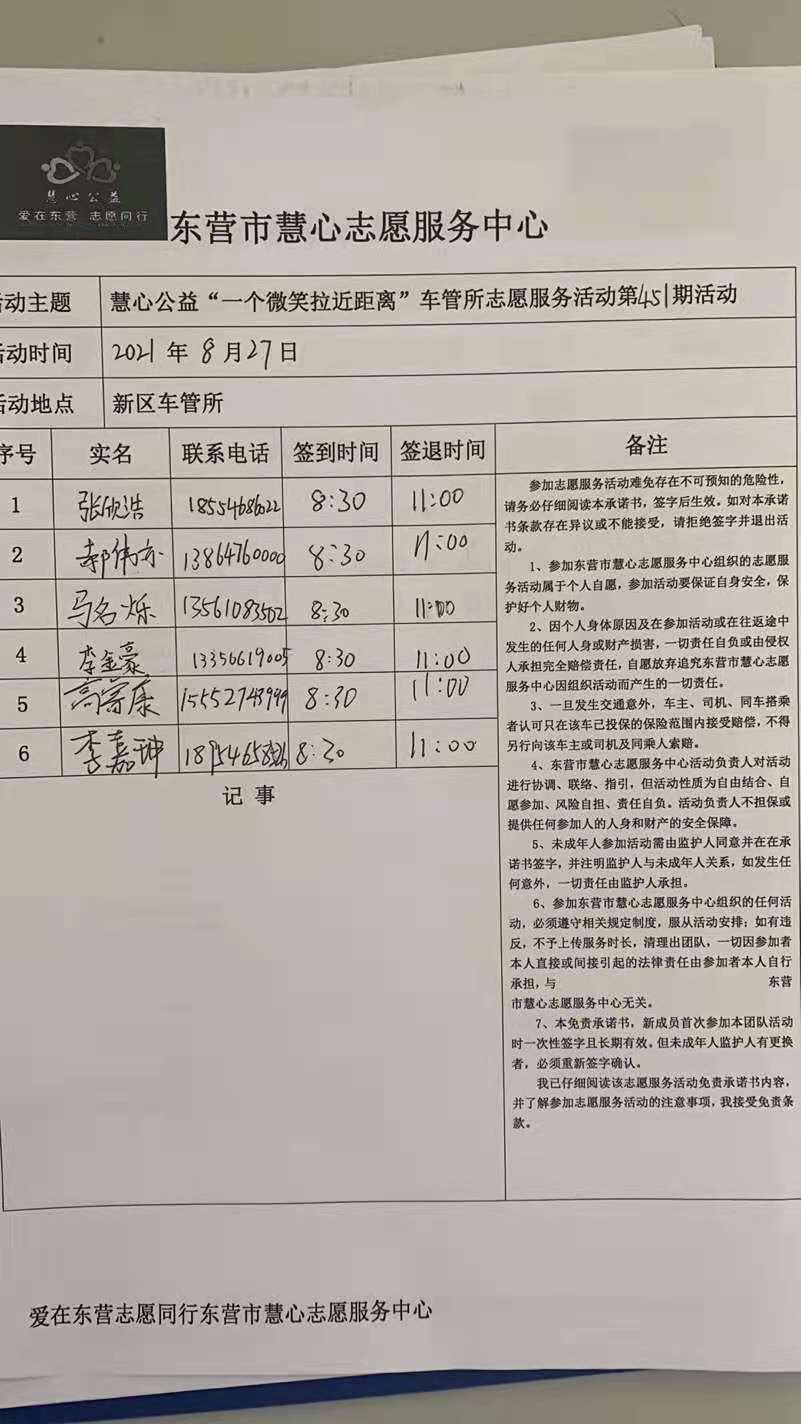 慧心公益
爱在东营 志愿同行
东营市慧心志愿服务中心
活动主题 慧心公益“一个微笑拉近距离”车管所志愿服务活动第451期活动
活动时间 2021年8月27日
活动地点 新区车管所
序号 实名 联系电话 签到时间 签退时间 备注
1 张欣浩 18554686022 8:30 11:00
2 13864760000 8:30 11:00
3 马名烁 13561083502 8:30 11:00
4 李金豪 13356619005 8:30 11:00
5 15552743999 8:30 11:00
6 李嘉珅 8:30 11:00
记事
参加志愿服务活动难免存在不可预知的危险性，
请务必仔细阅读本承诺书，签字后生效。如对本承诺
书条款存在异议或不能接受，请拒绝签字并退出活
动。
1、参加东营市慧心志愿服务中心组织的志愿服
务活动属于个人自愿，参加活动要保证自身安全，保
护好个人财物。
2、因个人身体原因及在参加活动或在往返途中
发生的任何人身或财产损害，一切责任自负或由侵权
人承担完全赔偿责任，自愿放弃追究东营市慧心志愿
服务中心因组织活动而产生的一切责任。
3、一旦发生交通意外，车主、司机、同车搭乘
者认可只在该车已投保的保险范围内接受赔偿，不得
另行向该车主或司机及同乘人索赔。
4、东营市慧心志愿服务中心活动负责人对活动
进行协调、联络、指引，但活动性质为自由结合、自
愿参加、风险自担、责任自负。活动负责人不担保或
提供任何参加人的人身和财产的安全保障。
5、未成年人参加活动需由监护人同意并在在承
诺书签字，并注明监护人与未成年人关系，如发生任
何意外，一切责任由监护人承担。
6、参加东营市慧心志愿服务中心组织的任何活
动，必须遵守相关规定制度，服从活动安排；如有违
反，不予上传服务时长，清理出团队，一切因参加者
本人直接或间接引起的法律责任由参加者本人自行
承担，与 东营
市慧心志愿服务中心无关。
7、本免责承诺书，新成员首次参加本团队活动
时一次性签字且长期有效。但未成年人监护人有更换
者，必须重新签字确认。
我已仔细阅读该志愿服务活动免责承诺书内容，
并了解参加志愿服务活动的注意事项，我接受免责条
款。
爱在东营志愿同行东营市慧心志愿服务中心